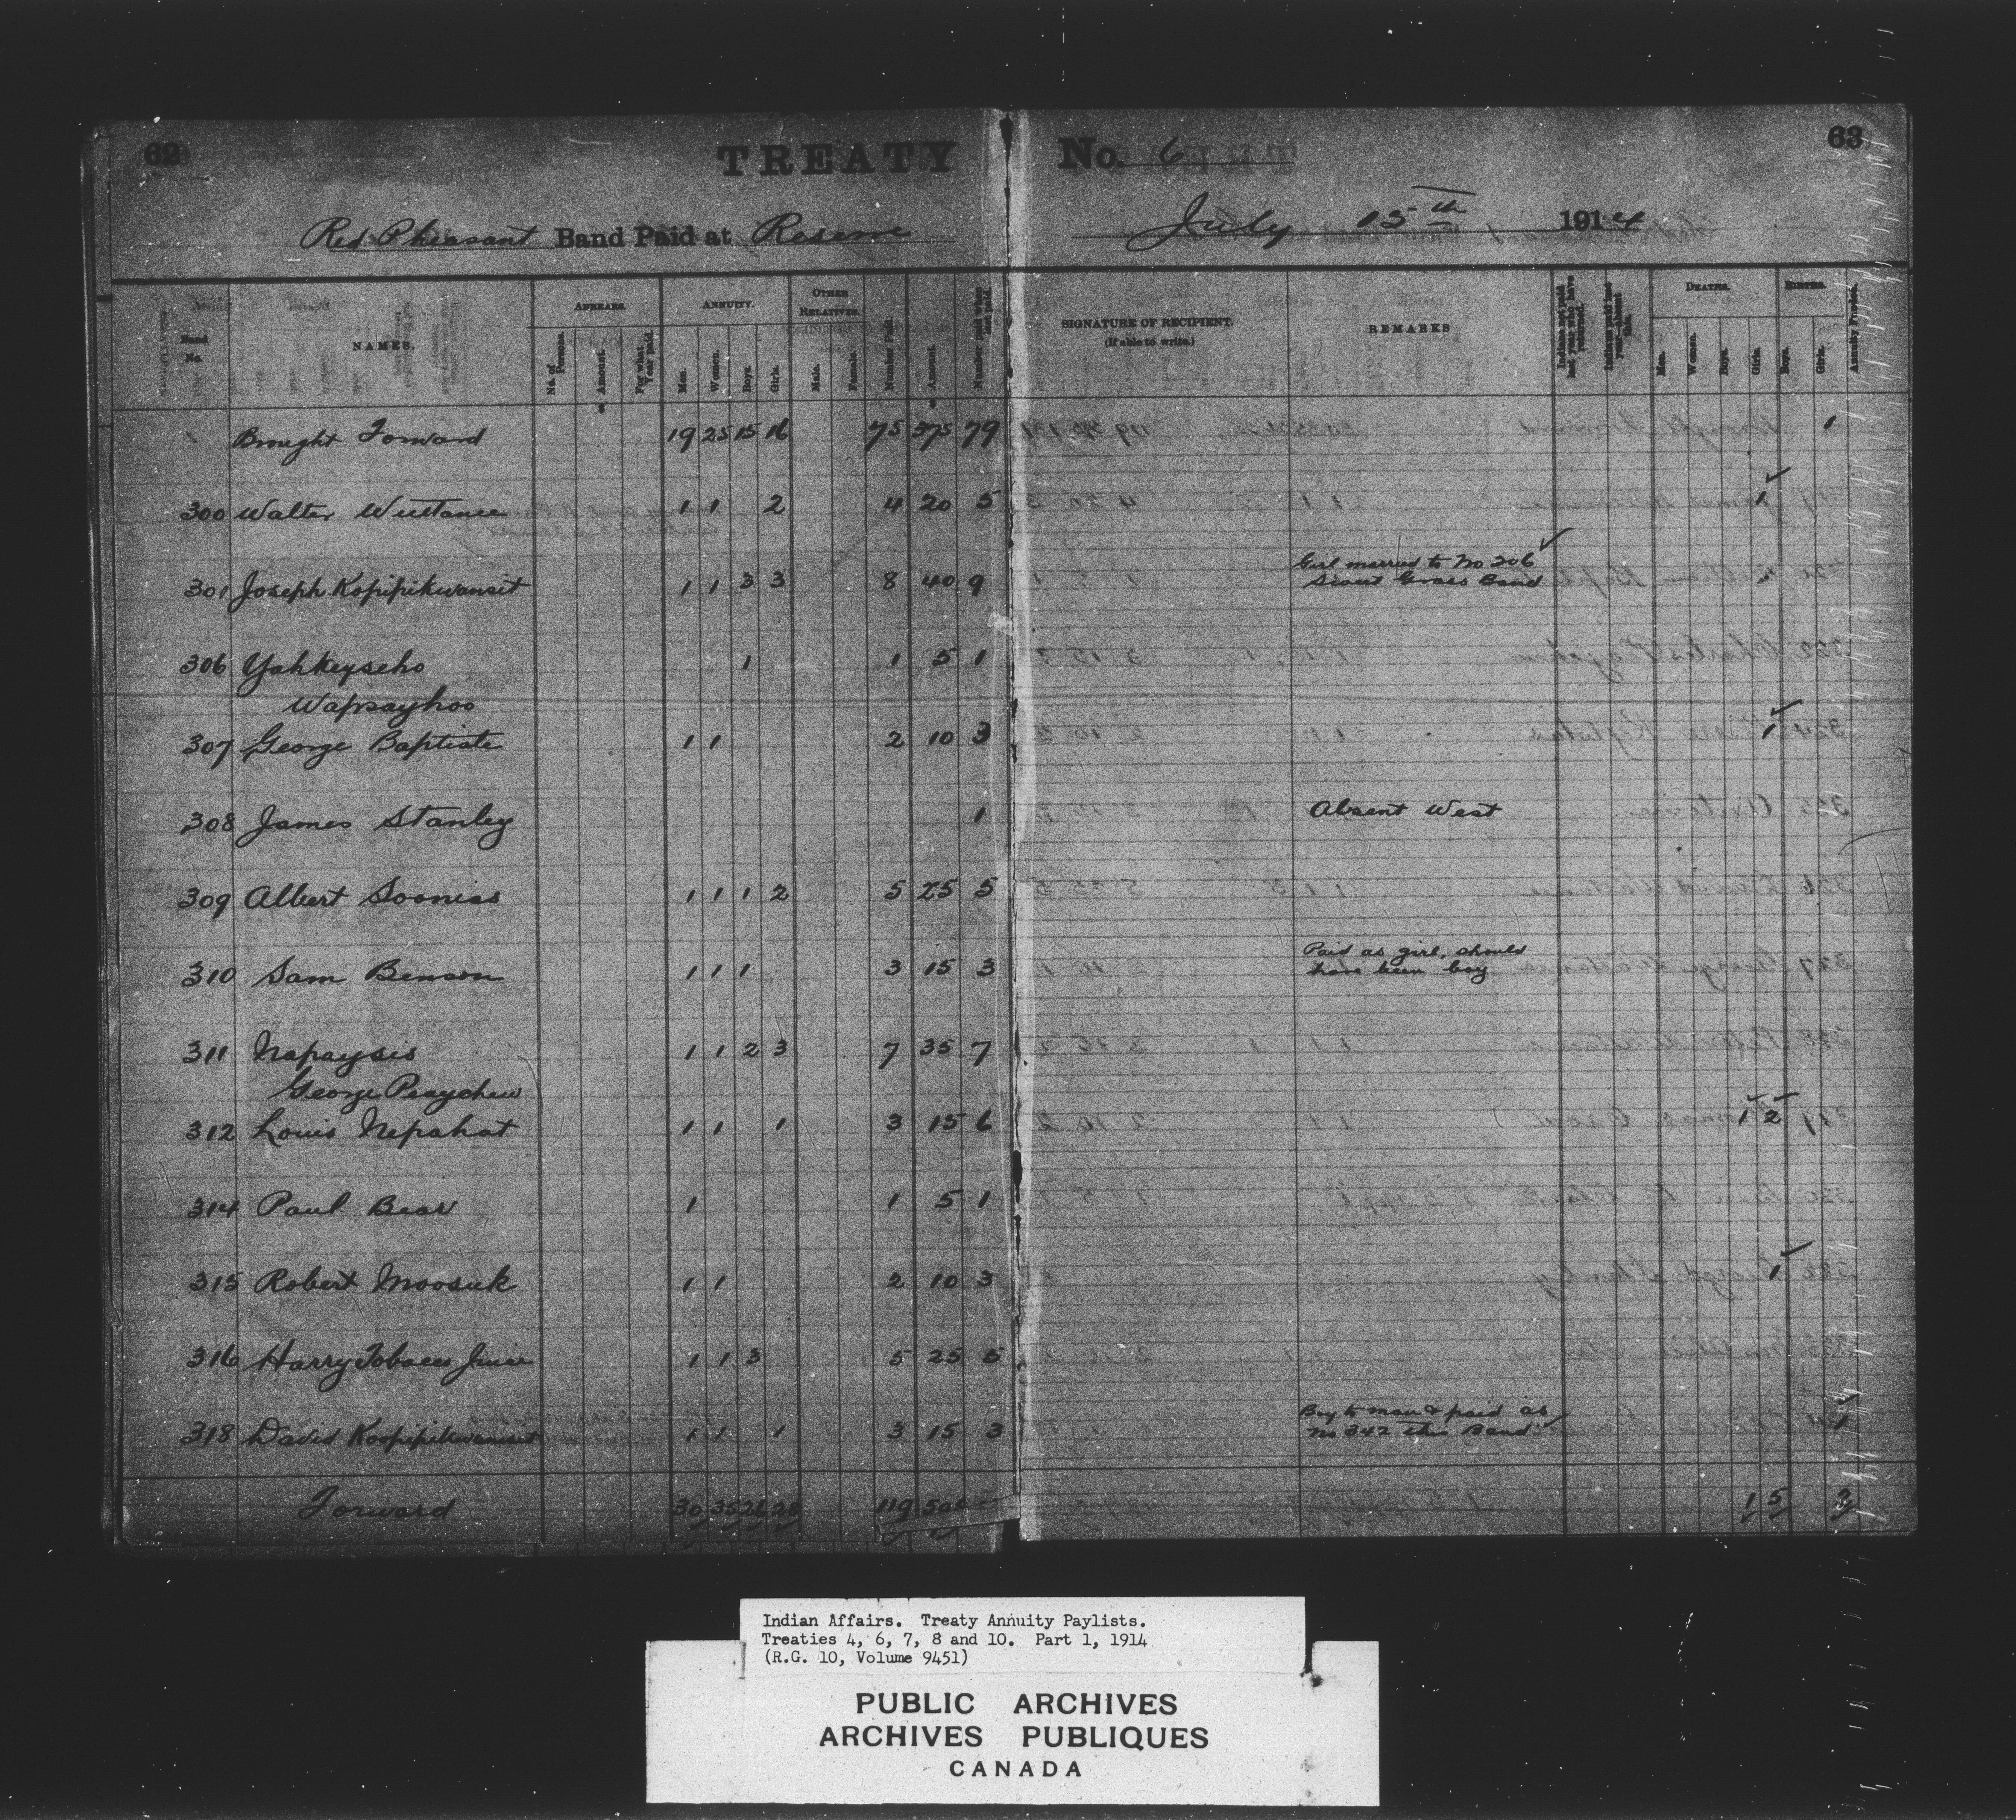 62
TREATY No. 6
63
Red Pheasant Band Paid at Reserve July 15th 1914
Band No.
NAMES.
ARREARS.
No. of Persons.
Amount.
For what Year paid.
ANNUITY.
Men.
Women.
Boys.
Girls.
OTHER RELATIVES.
Male.
Female.
Number Paid.
Amount.
Number paid when last paid.
SIGNATURE OF RECIPIENT.
(If able to write.)
REMARKS
Indians not paid last year who have returned.
Indians paid last year—absent this.
DEATHS.
Men.
Women.
Boys.
Girls.
BIRTHS.
Boys.
Girls.
Brought Forward 19 25 15 16 75 375 79 1
300 Walter Wuttunee 1 1 2 4 20 5 1
301 Joseph Kopipikwansit 1 1 3 3 8 40 9 Girl married to No 206
Sweet Grass Band
306 Yahkeyseho 1 1 5 1
Wapsayhoo
307 George Baptiste 1 1 2 10 3 1
308 James Stanley 1 Absent West
309 Albert Sooniss 1 1 1 2 5 25 5
310 Sam Benson 1 1 1 3 15 3 Paid as girl, should
have been boy
311 Napaysis 1 1 2 3 7 35 7
George Peaychew
312 Louis Nepahat 1 1 1 3 15 6 1 2
314 Paul Bear 1 1 5 1
315 Robert Moosuk 1 1 2 10 3 1
316 Harry Tobacco Juice 1 1 3 5 25 5
318 David Kopipikwansit 1 1 1 3 15 3 Boy to man & paid as
No 342 this Band 1
Forward 30 35 26 28 119 1 5
Indian Affairs. Treaty Annuity Paylists.
Treaties 4, 6, 7, 8 and 10. Part 1, 1914
(R.G. 10, Volume 9451)
PUBLIC ARCHIVES
ARCHIVES PUBLIQUES
CANADA